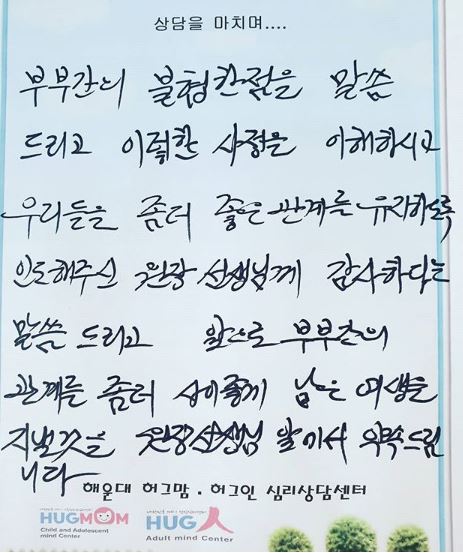 상담을 마치며....
부부간의 불협한점을 말씀
드리고 이렇한 사정을 이해하시고
우리들을 좀더 좋은 관계를 유지하도록
인도해주신 원장 선생님께 감사하다는
말씀 드리고 앞으로 부부간의
관계를 좀더 사이좋게 남은 여생을
지낼것을 원장선생님 앞에서 약속드림
니다
해운대 허그맘 · 허그인 심리상담센터
HUGMOM HUG人
Child and Adolescent
mind Center
Adult mind Center